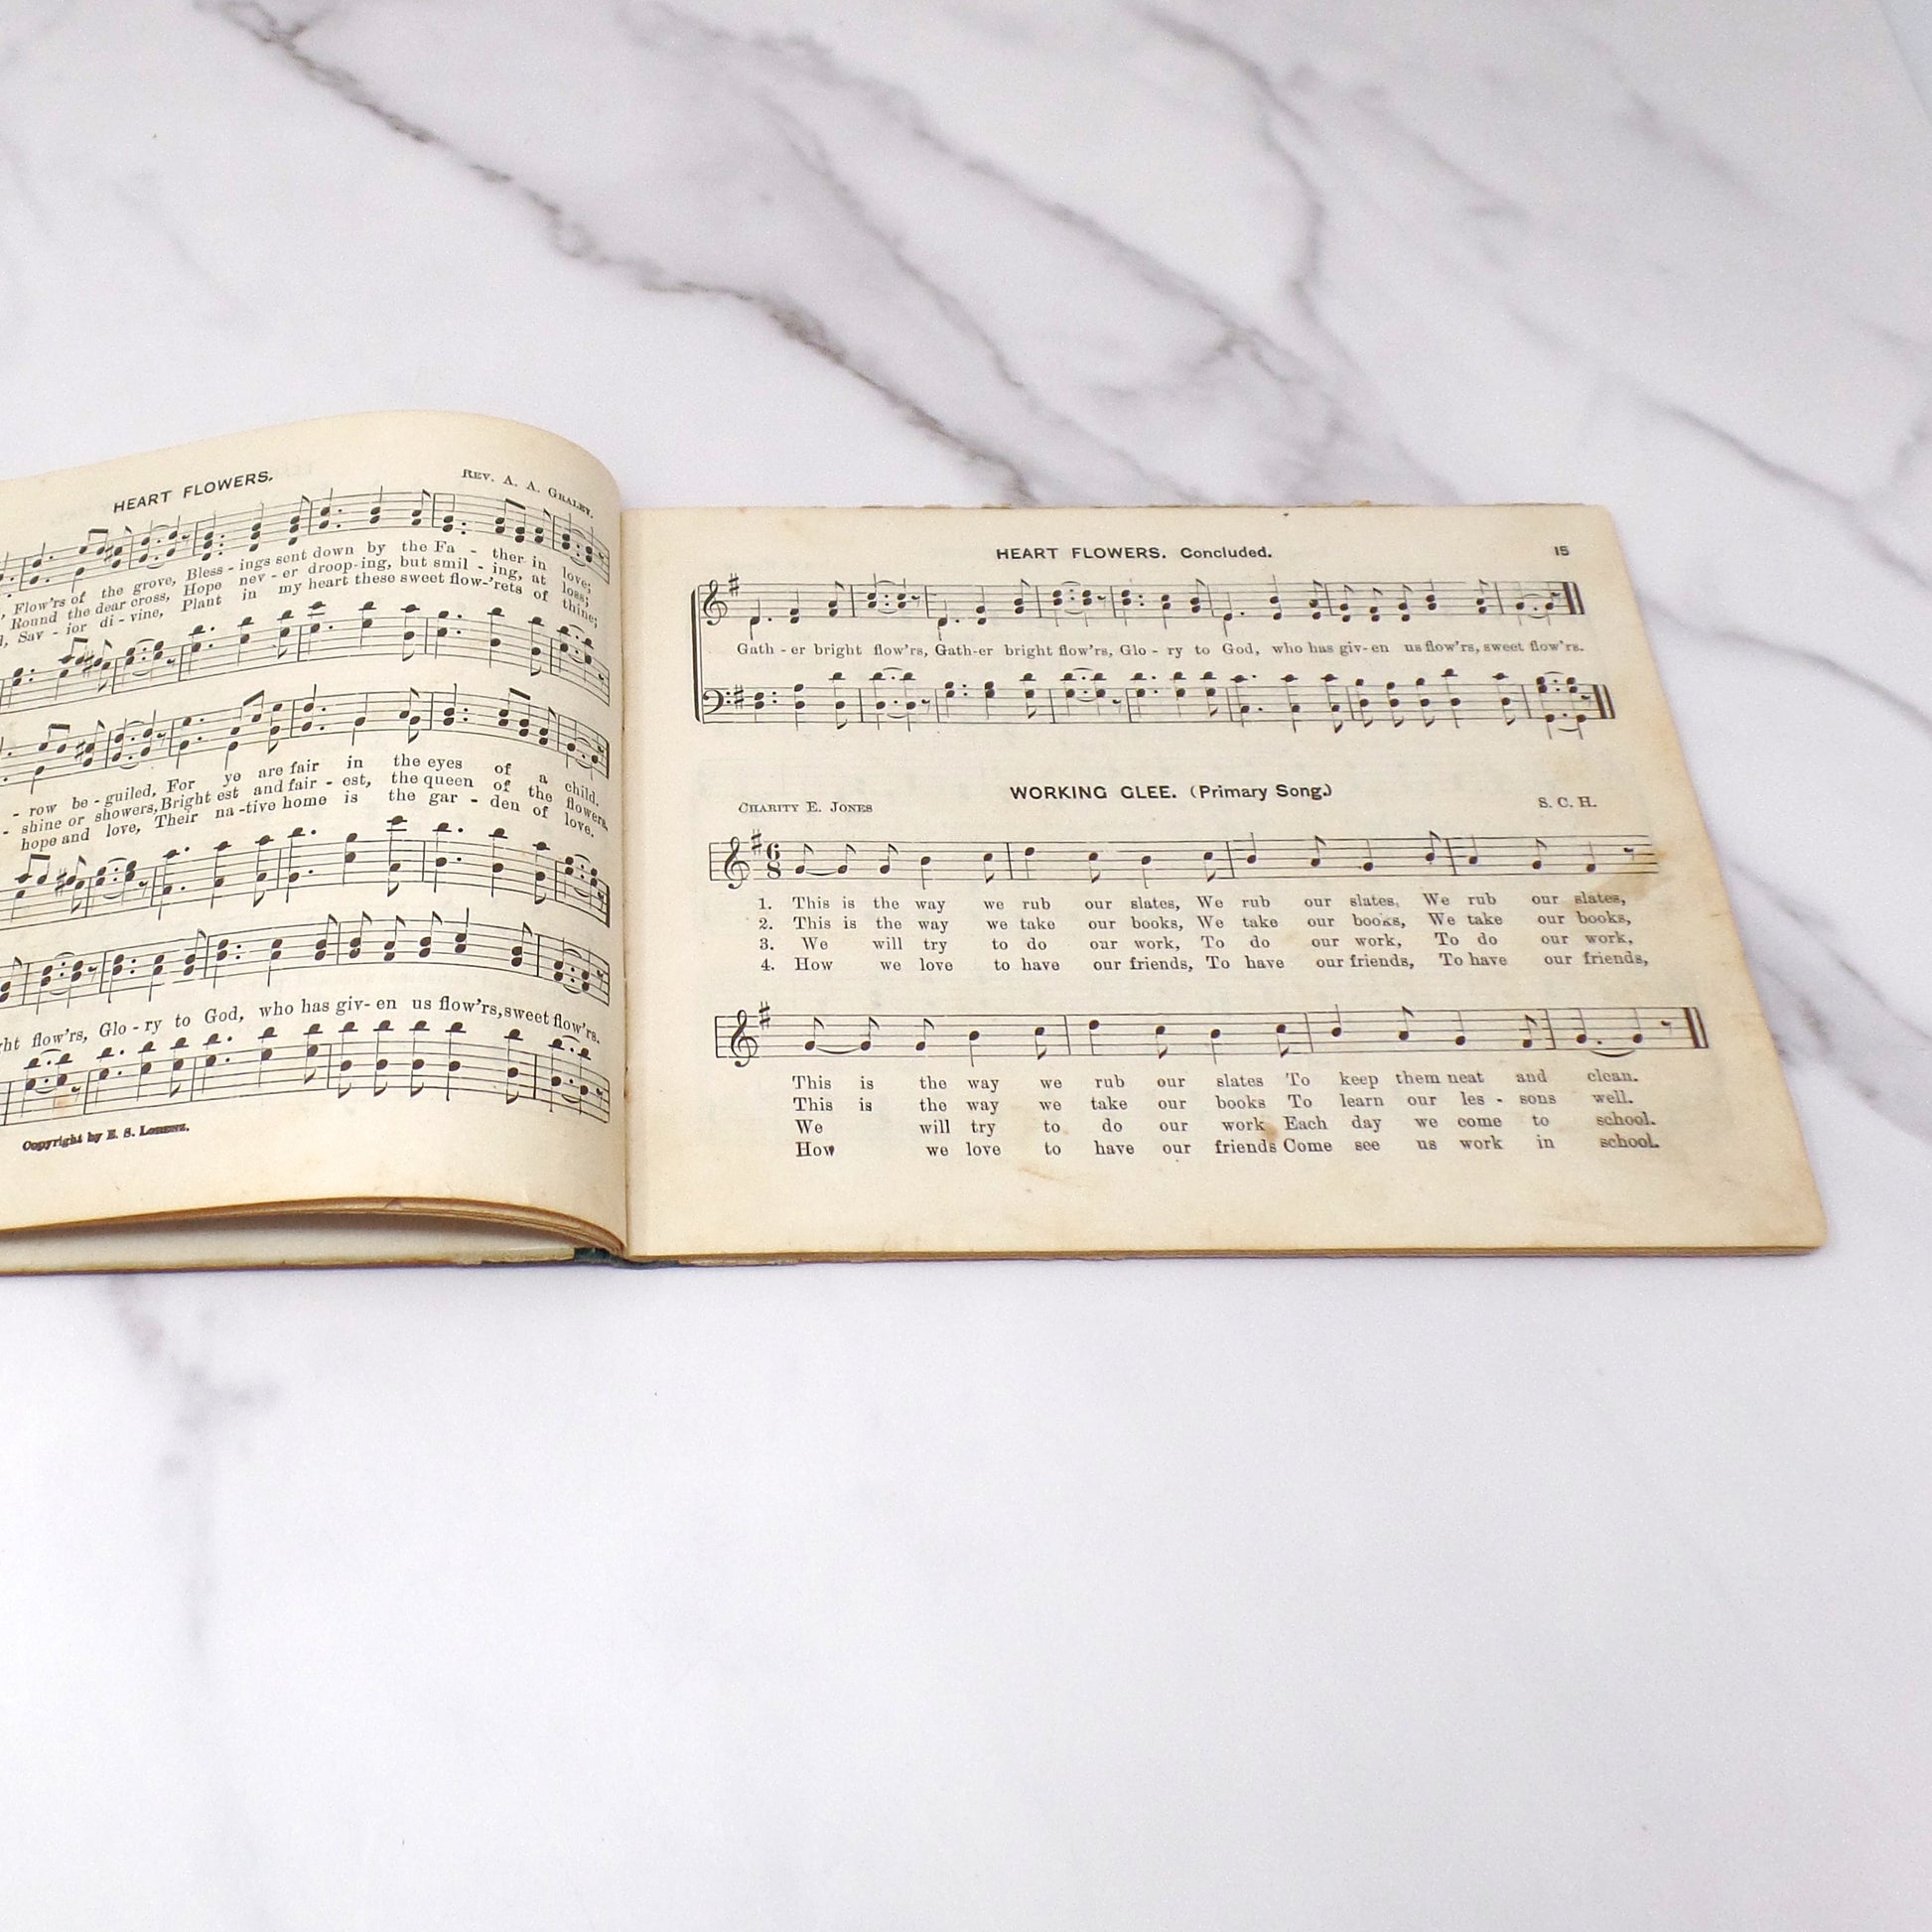 HEART FLOWERS.
REV. A. A. GRALEY.
Flow'rs of the grove, Bless - ings sent down by the Fa - ther in love;
Round the dear cross, Hope nev - er droop-ing, but smil - ing, at loss;
Sav - ior di - vine, Plant in my heart these sweet flow-'rets of thine;
- row be - guiled, For ye are fair in the eyes of a child.
- shine or showers, Bright est and fair - est, the queen of the flowers,
hope and love, Their na -tive home is the gar - den of love.
flow'rs, Glo - ry to God, who has giv- en us flow'rs, sweet flow'rs.
Copyright by E. S. LORENZ.
HEART FLOWERS. Concluded.
15
Gath - er bright flow'rs, Gath-er bright flow'rs, Glo - ry to God, who has giv- en us flow'rs, sweet flow'rs.
WORKING GLEE. (Primary Song.)
CHARITY E. JONES
S. C. H.
6
8
1. This is the way we rub our slates, We rub our slates, We rub our slates,
2. This is the way we take our books, We take our books, We take our books,
3. We will try to do our work, To do our work, To do our work,
4. How we love to have our friends, To have our friends, To have our friends,
This is the way we rub our slates To keep them neat and clean.
This is the way we take our books To learn our les - sons well.
We will try to do our work Each day we come to school.
How we love to have our friends Come see us work in school.